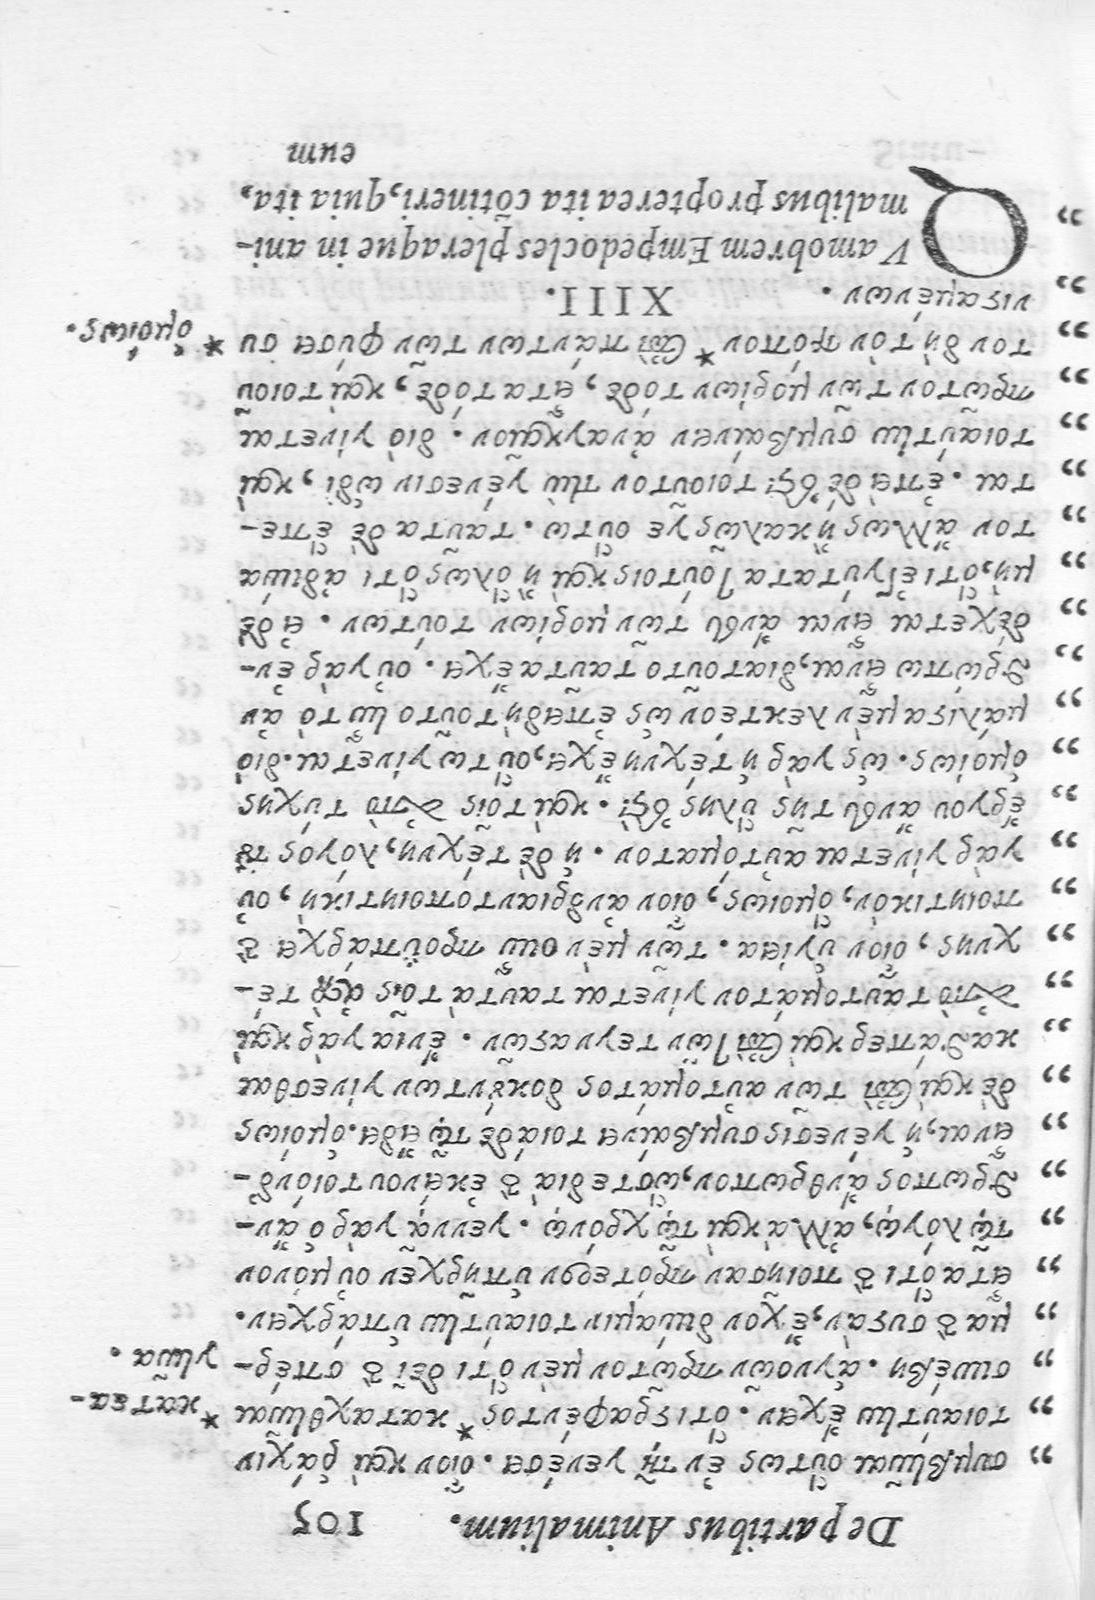 De partibus Animalium. 105
„ συμβῆναι οὕτως ἐν τῇ γενέσει. οἷον καὶ ῥάχιν
„ τοιαύτην ἔχειν. ὅτι στραφέντος * καταχθῆναι
*κατεα-
„ συνέβη. ἀγνοῶν πρῶτον μὲν ὅτι δεῖ τὸ σπέρ-
γῆναι.
„ μα τὸ συστὰν, ἔχον δύναμιν τοιαύτην ὑπάρχειν.
„ εἶτα ὅτι τὸ ποιῆσαν πρότερον ὑπῆρχεν οὐ μόνον
„ τῷ λόγῳ, ἀλλὰ καὶ τῷ χρόνῳ. γεννᾷ γὰρ ὁ ἄν-
„ θρωπος ἄνθρωπον, ὥστε διὰ τὸ ἐκεῖνον τοιόνδ-
„ εἶναι, ἡ γένεσις συμβαίνει τοιάδε τῷ εἴδει. ὁμοίως
„ δὲ καὶ ἐπὶ τῶν αὐτομάτως δοκούντων γίνεσθαι
„ καθάπερ καὶ ἐπὶ τῶν τεγναστῶν. ἔνια γὰρ καὶ
„ ἀπὸ ταὐτομάτου γίνεται ταυτὰ τοῖς ἀπὸ τέ-
„ χνης, οἷον ὑγίεια. τῶν μὲν οὖν προϋπάρχει τὸ
„ ποιητικὸν, ὁμοίως, οἷον ἀνδριαντοποιητικὴ, οὐ
„ γὰρ γίνεται αὐτόματον. ἡ δὲ τέχνη, λόγος τοῦ
„ ἔργου ἄνευ τῆς ὕλης ἐστί. καὶ τοῖς ἀπὸ τύχης
„ ὁμοίως. ὡς γὰρ ἡ τέχνη ἔχει, οὕτω γίνεται. διὸ
„ μάλιστα μὲν λεκτέον ὡς ἐπειδὴ τοῦτο ἦν τὸ ἀν
„ θρώπῳ εἶναι, διατοῦτο ταῦτα ἔχει. οὐ γὰρ ἐν-
„ δέχεται εἶναι ἄνευ τῶν μορίων τούτων. εἰ δὲ
„ μὴ, ὅτι ἐγγύτατα τούτοις καὶ ἢ ὅλως ὅτι ἀδύνα
„ τον ἄλλως ἢ καλῶς γε οὕτω. ταῦτα δὲ ἕπε-
„ ται. ἐπεὶ δέ ἐστι τοιοῦτον τὴν γένεσιν ὡδὶ, καὶ
„ τοιαύτην συμβαίνειν ἀναγκαῖον. διὸ γίνεται
„ πρῶτον τῶν μορίων τόδε, εἶτα τόδε, καὶ τοιοῦ
„ τον δὴ τὸν τρόπον * ἐπὶ πάντων τῶν φύσει συ *ὁμοίως.
„ νισταμένων.
XIII.
„ QVamobrem Empedocles pleraque in ani-
malibus propterea ita cõtineri, quia ita,
eum